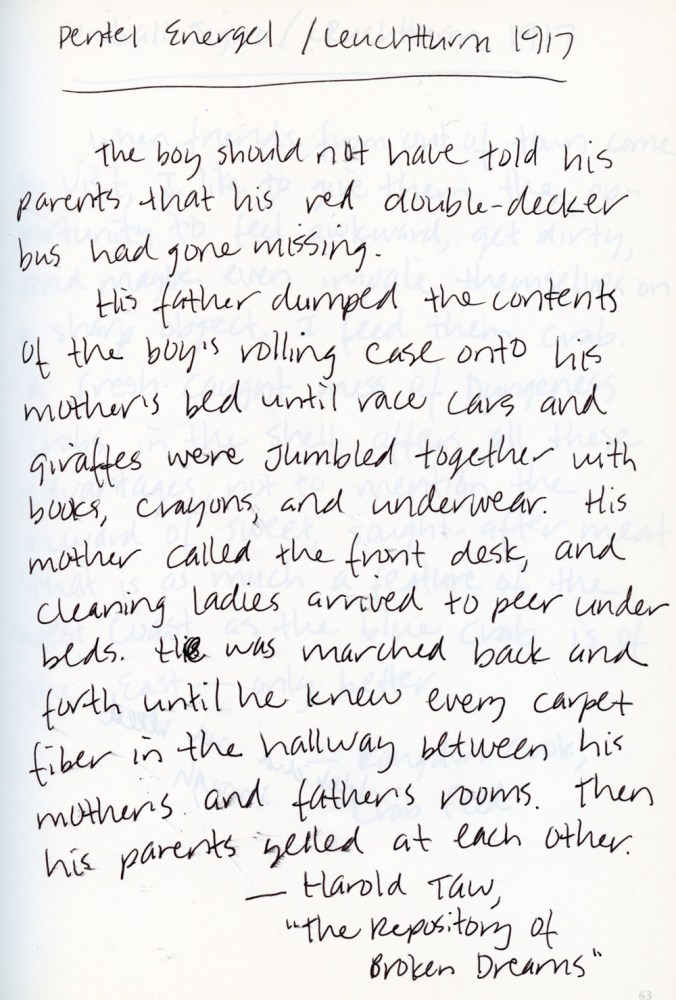 Pentel Energel / Leuchtturm 1917
The boy should not have told his
parents that his red double-decker
bus had gone missing.
His father dumped the contents
of the boy's rolling case onto his
mother's bed until race cars and
giraffes were jumbled together with
books, crayons, and underwear. His
mother called the front desk, and
cleaning ladies arrived to peer under
beds. He was marched back and
forth until he knew every carpet
fiber in the hallway between his
mother's and father's rooms. Then
his parents yelled at each other.
— Harold Taw,
"The Repository of
Broken Dreams"
63